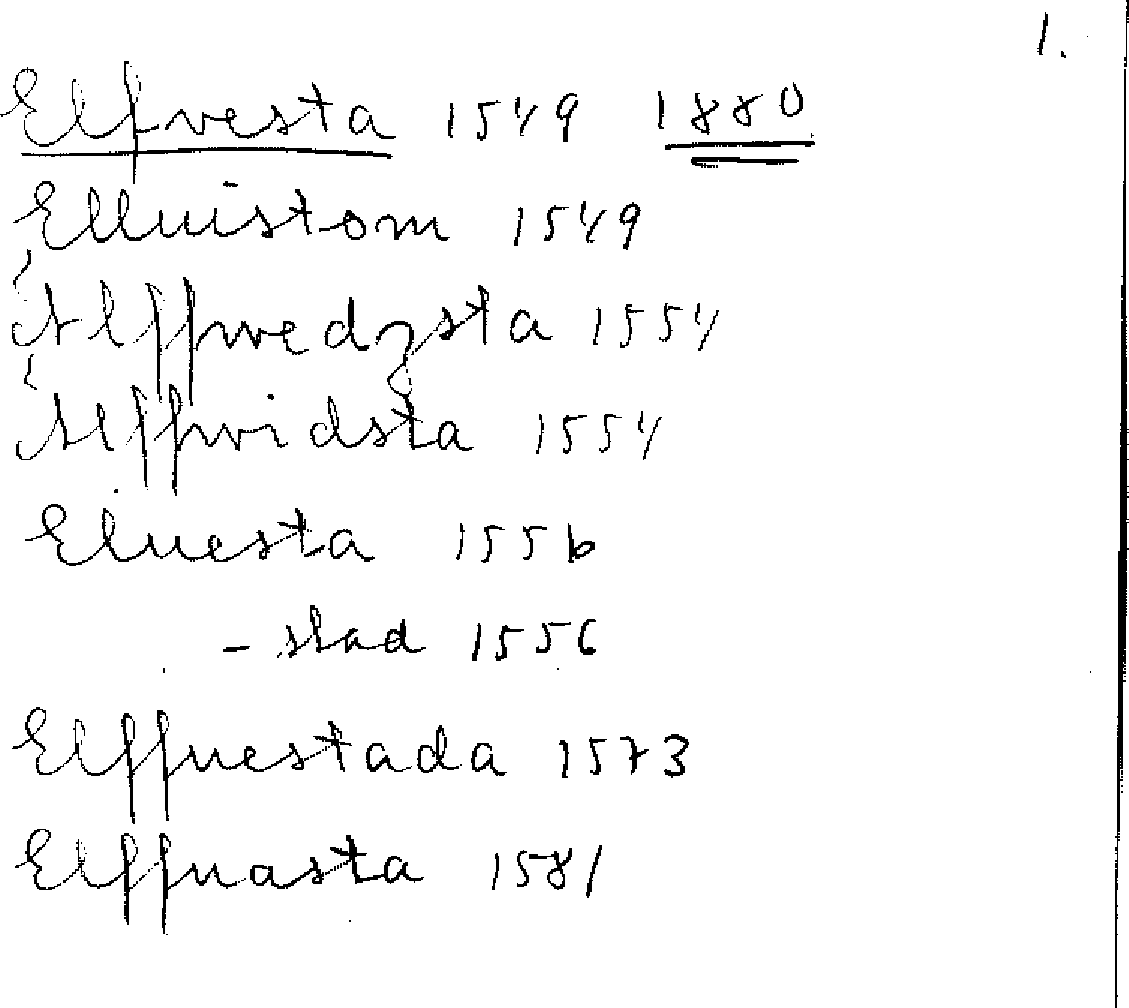 1.
Elfvesta 1549 1880
Elluistom 1549
Älffwedzsta 1554
Älffwidsta 1554
Eluesta 1556
- stad 1556
Elffuestada 1573
Elffuasta 1581